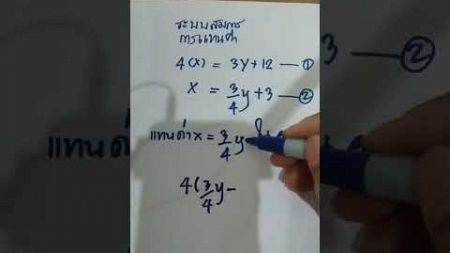 ระบบสมการ
การแทนค่า
4(x) = 3y+12 — ①
x = 3/4 y + 3 — ②
แทนค่า x = 3/4 y
4(3/4 y -
②